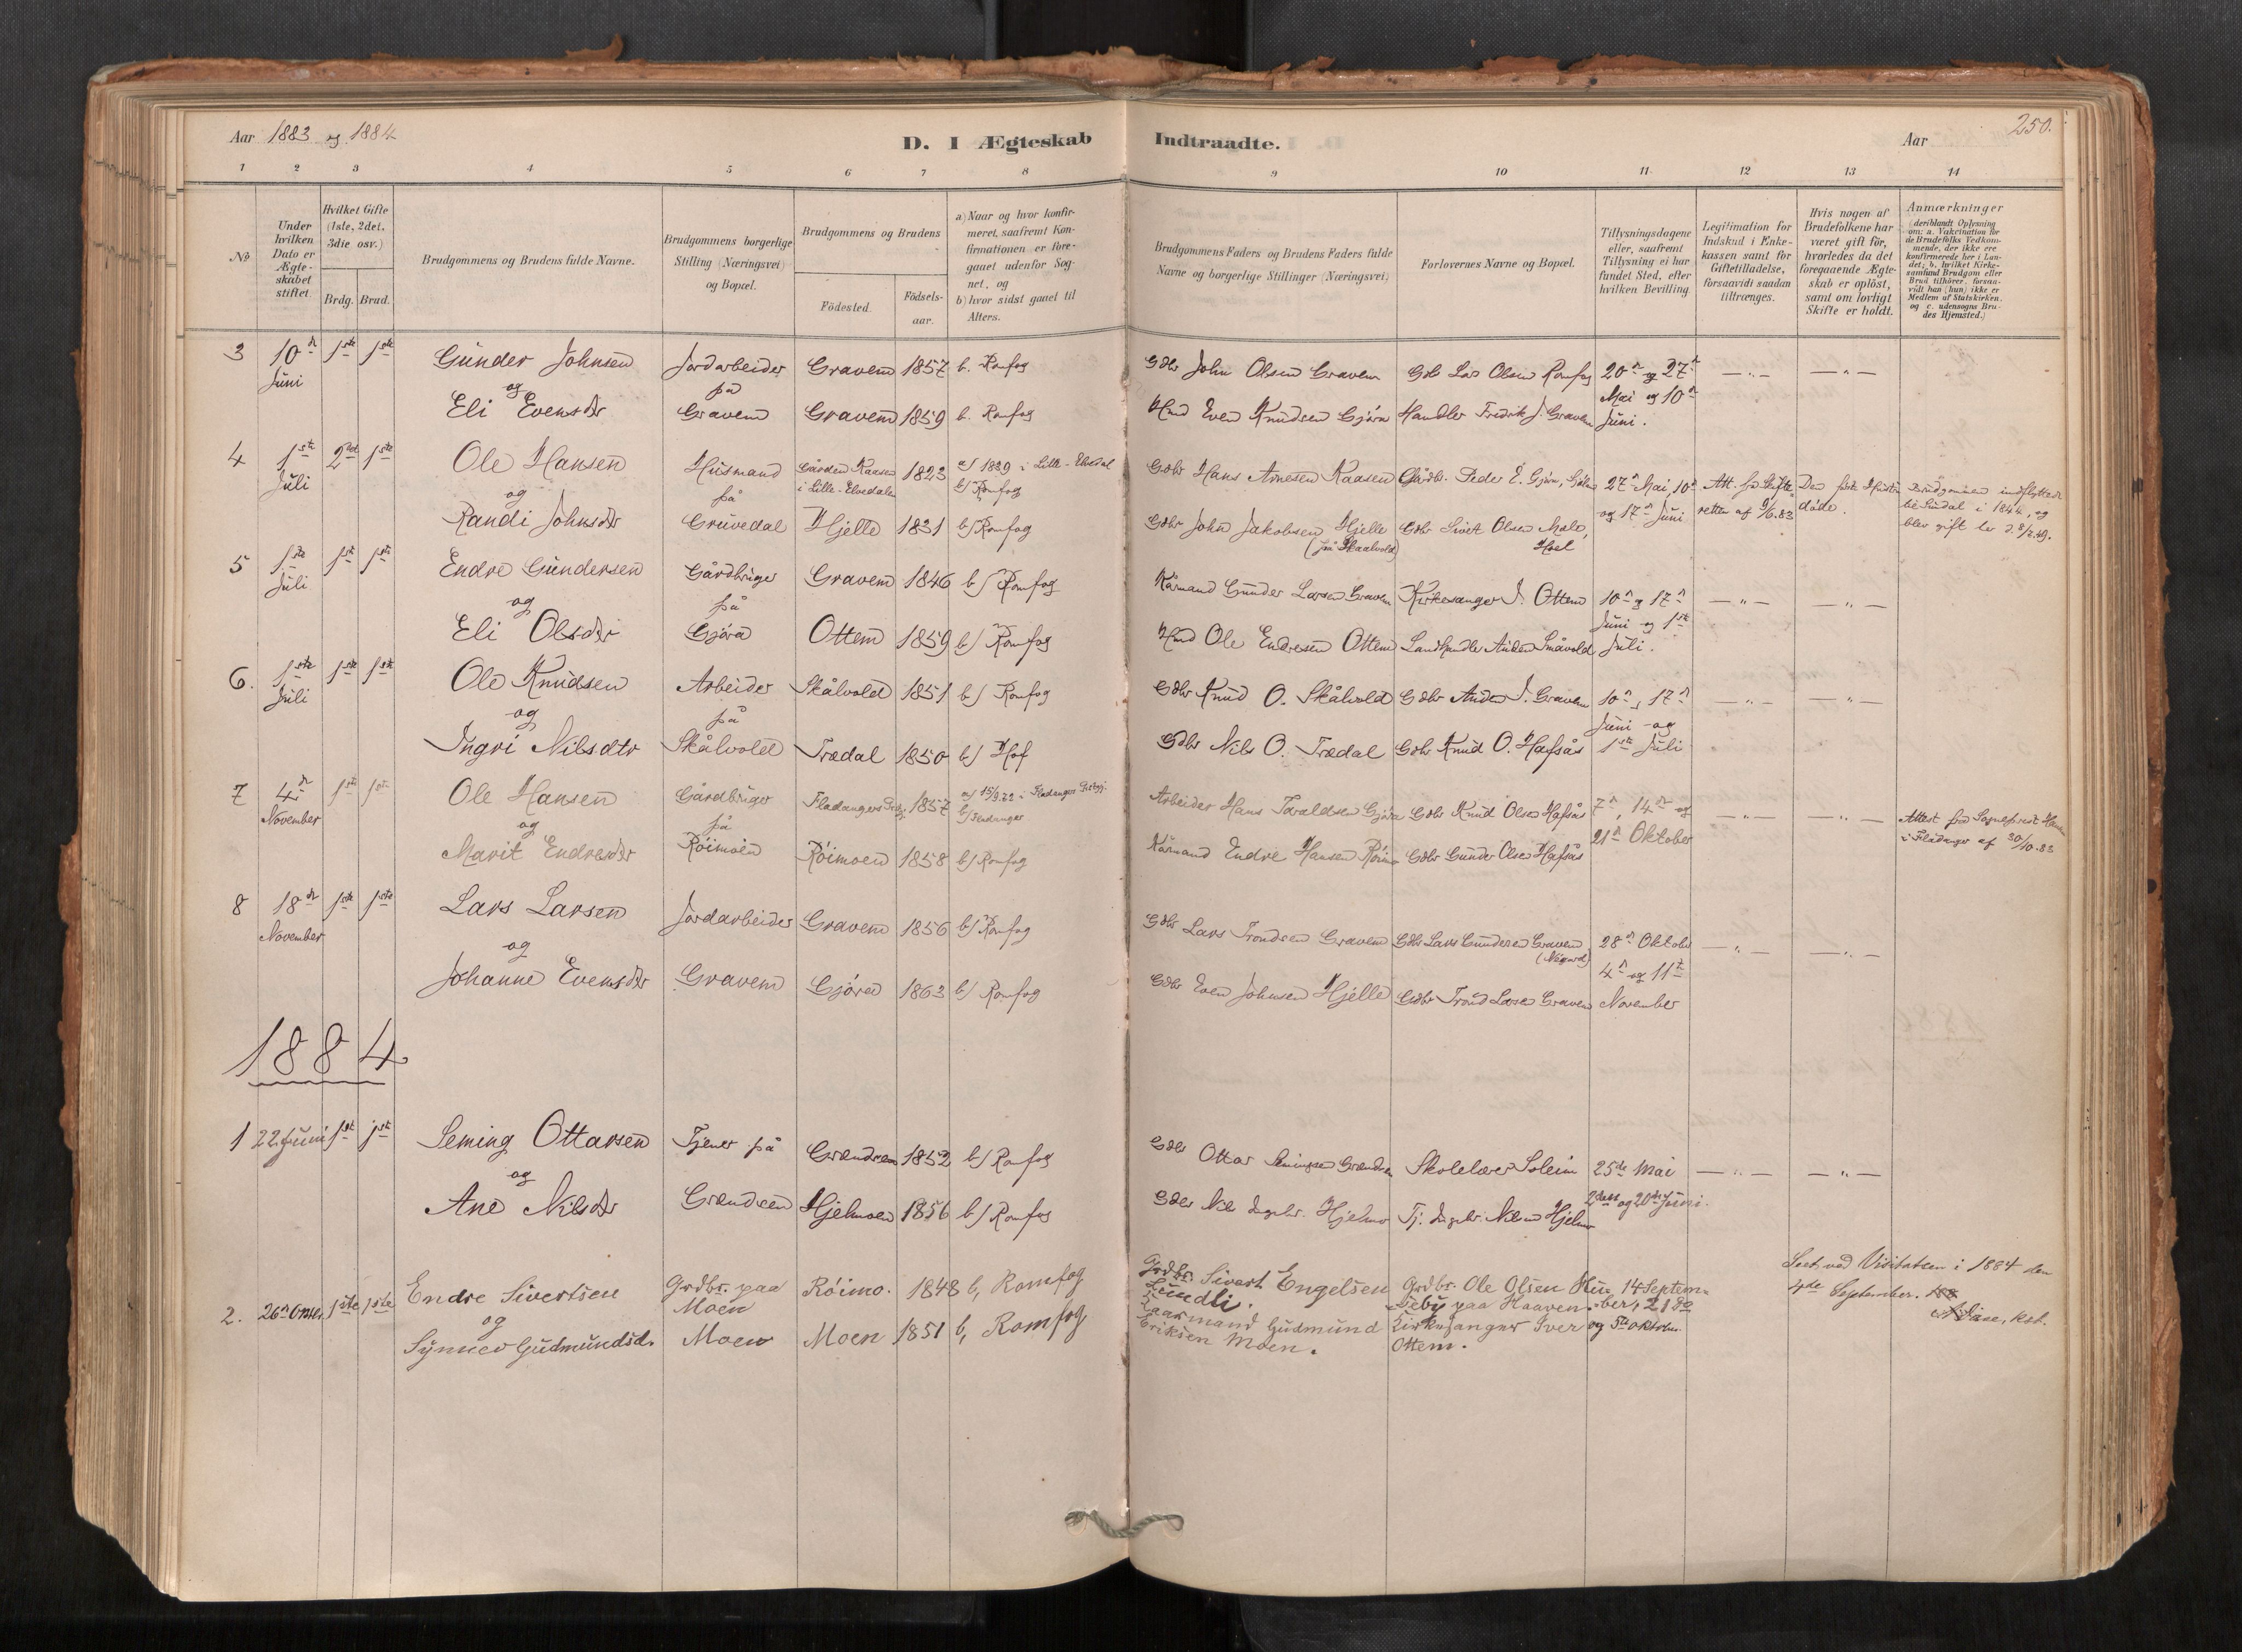 Aar 1883 og 1884
D. I Ægteskab Indtraadte.
Aar
250.
1 2 3 4 5 6 7 8 9 10 11 12 13 14
No
Under hvilken Dato er Ægteskabet stiftet.
Hvilket Gifte (1ste, 2det, 3die osv.)
Brdg. Brud.
Brudgommens og Brudens fulde Navne.
Brudgommens borgerlige Stilling (Næringsvei) og Bopæl.
Brudgommens og Brudens
Födested.
Födselsaar.
a) Naar og hvor konfirmeret, saafremt Konfirmationen er foregaaet udenfor Sognet, og
b) hvor sidst gaaet til Alters.
Brudgommens Faders og Brudens Faders fulde Navne og borgerlige Stillinger (Næringsvei)
Forlovernes Navne og Bopæl.
Tillysningsdagene eller, saafremt Tillysning ei har fundet Sted, efter hvilken Bevilling.
Legitimation for Indskud i Enkekassen samt for Giftetilladelse, forsaavidt saadan tiltrænges.
Hvis nogen af Brudefolkene har været gift för, hvorledes da det foregaaende Ægteskab er oplöst, samt om lovligt Skifte er holdt.
Anmærkninger (deriblandt Oplysning om: a. Vakcination for de Brudefolks Vedkommende, der ikke ere konfirmerede her i Landet; b. hvilket Kirkesamfund Brudgom eller Brud tilhörer, forsaavidt han (hun) ikke er Medlem af Statskirken, og c. udensogns Brudes Hjemsted.)
3 10n Juni 1ste 1ste Gunder Johnsen Jordarbeider Gravem 1857 b. Romfog Gdbr John Olsen Gravem Gdb Lars Olsen Romfog 20n og 27n
og på Mai og 10n
Eli Evensdr Gravem Gravem 1859 b. Romfog Hmd Even Knudsen Gjöra Handler Fredrik J. Gravem Juni.
4 1ste Juli 2det 1ste Ole Hansen Husmand Gården Kaasen i Lille-Elvedalen 1823 a) 1839 i Lille-Elvedal b) Romfog Gdbr Hans Arnesen Kaasen Gårdb. Peder E. Gjöra, 27n Mai, 10n
og på og 17n Juni
Att. fra Skifteretten af 9/6.83
Den förste Hustru döde.
Brudgommen indflyttede til Sundal i 1844, og blev gift her d. 8/7.49.
Randi Johnsdr Gruvedal Hjelle 1831 b) Romfog Gdbr John Jakobsen Hjelle (på Skaalvold) Gdbr Sivert Olsen Mele, Hoel
5 1ste Juli 1ste 1ste Endre Gundersen Gårdbruger Gravem 1846 b) Romfog Kårmand Gunder Larsen Gravem Kirkesanger I. Ottem 10n og 17n
og på Juni og 1ste
Eli Olsdr Gjöra Ottem 1859 b) Romfog Hmd Ole Endresen Ottem Landhandler Småvold Juli.
6. 1ste Juli 1ste 1ste Ole Knudsen Arbeider Skålvold 1851 b) Romfog Gdbr Knud O. Skålvold Gdbr J. Gravem 10n, 17n
og på Juni og
Ingri Nilsdtr Skålvold Trædal 1850 b) Hof Gdbr Nils O. Trædal Gdbr Knud O. Hafsås 1ste Juli
7 4n November 1ste 1ste Ole Hansen Gårdbruger Fladanger 1857 a) 15/9.72 i Fladanger b) Fladanger Arbeider Hans Toraldsen Gjöra Gdbr Knud Olsen Hafsås 7n, 14n og
og på 21n Oktober
Attest fra Sogneprest i Fladanger af 30/10.83
Marit Endresdr Röimoen Röimoen 1858 b) Romfog Kårmand Endre Hansen Gdbr Gunder Olsen Hafsås
8 18n November 1ste 1ste Lars Larsen Jordarbeider Gravem 1856 b) Romfog Gdbr Lars Trondsen Gravem Gdbr Lars Gundersen Gravem 28n Oktobr
og 4n og 11te
Johanne Evensdr Gravem Gjöra 1863 b) Romfog Gdbr Even Johnsen Hjelle Gdbr Trond Larsen Gravem November
1884
1 22 Juni 1ste 1ste Seming Ottarsen Tjener på Grændsen 1852 b) Romfog Gdbr Ottar Semingsen Grændsen Skolelærer Soleim 25de Mai
og 2den og 20de Juni.
Ane Nilsdr Grændsen Hjelmoen 1856 b) Romfog Gdbr Nils Ingebr. Hjelmo Tj. Ingebr. Nilsen Hjelmo
Seet ved Visitatsen i 1884 den
4de September.
2. 26n Oktbr. 1ste 1ste Endre Sivertsen Grdbr. paa Moen Röimo. 1848 b, Romfog Grdbr. Sivert Engelsen Lundli. Grdbr. Ole Olsen Husby paa Haaven. 14 September, 21do
og og 5te Oktober.
Synnev Gudmundsd. Moen Moen 1851 b, Romfog Kaarmand Gudmund Eriksen Moen. Kirkesanger Iver Ottem.